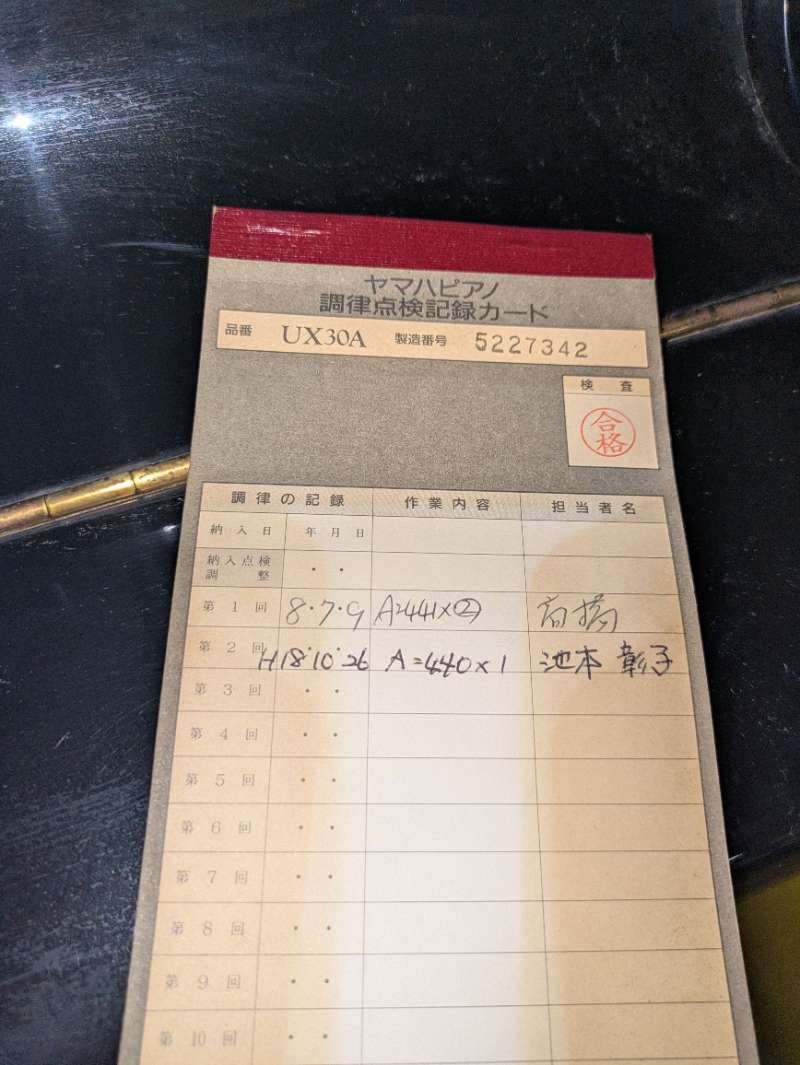 ヤマハピアノ
調律点検記録カード
品番 UX30A 製造番号 5227342
検査
合格
調律の記録 作業内容 担当者名
納入日 年 月 日
納入点検調整 ・ ・
第1回 8・7・9 A=441×② 高橋
第2回 H18・10・26 A=440×1 池本 彰子
第3回 ・ ・
第4回 ・ ・
第5回 ・ ・
第6回 ・ ・
第7回 ・ ・
第8回 ・ ・
第9回 ・ ・
第10回 ・ ・